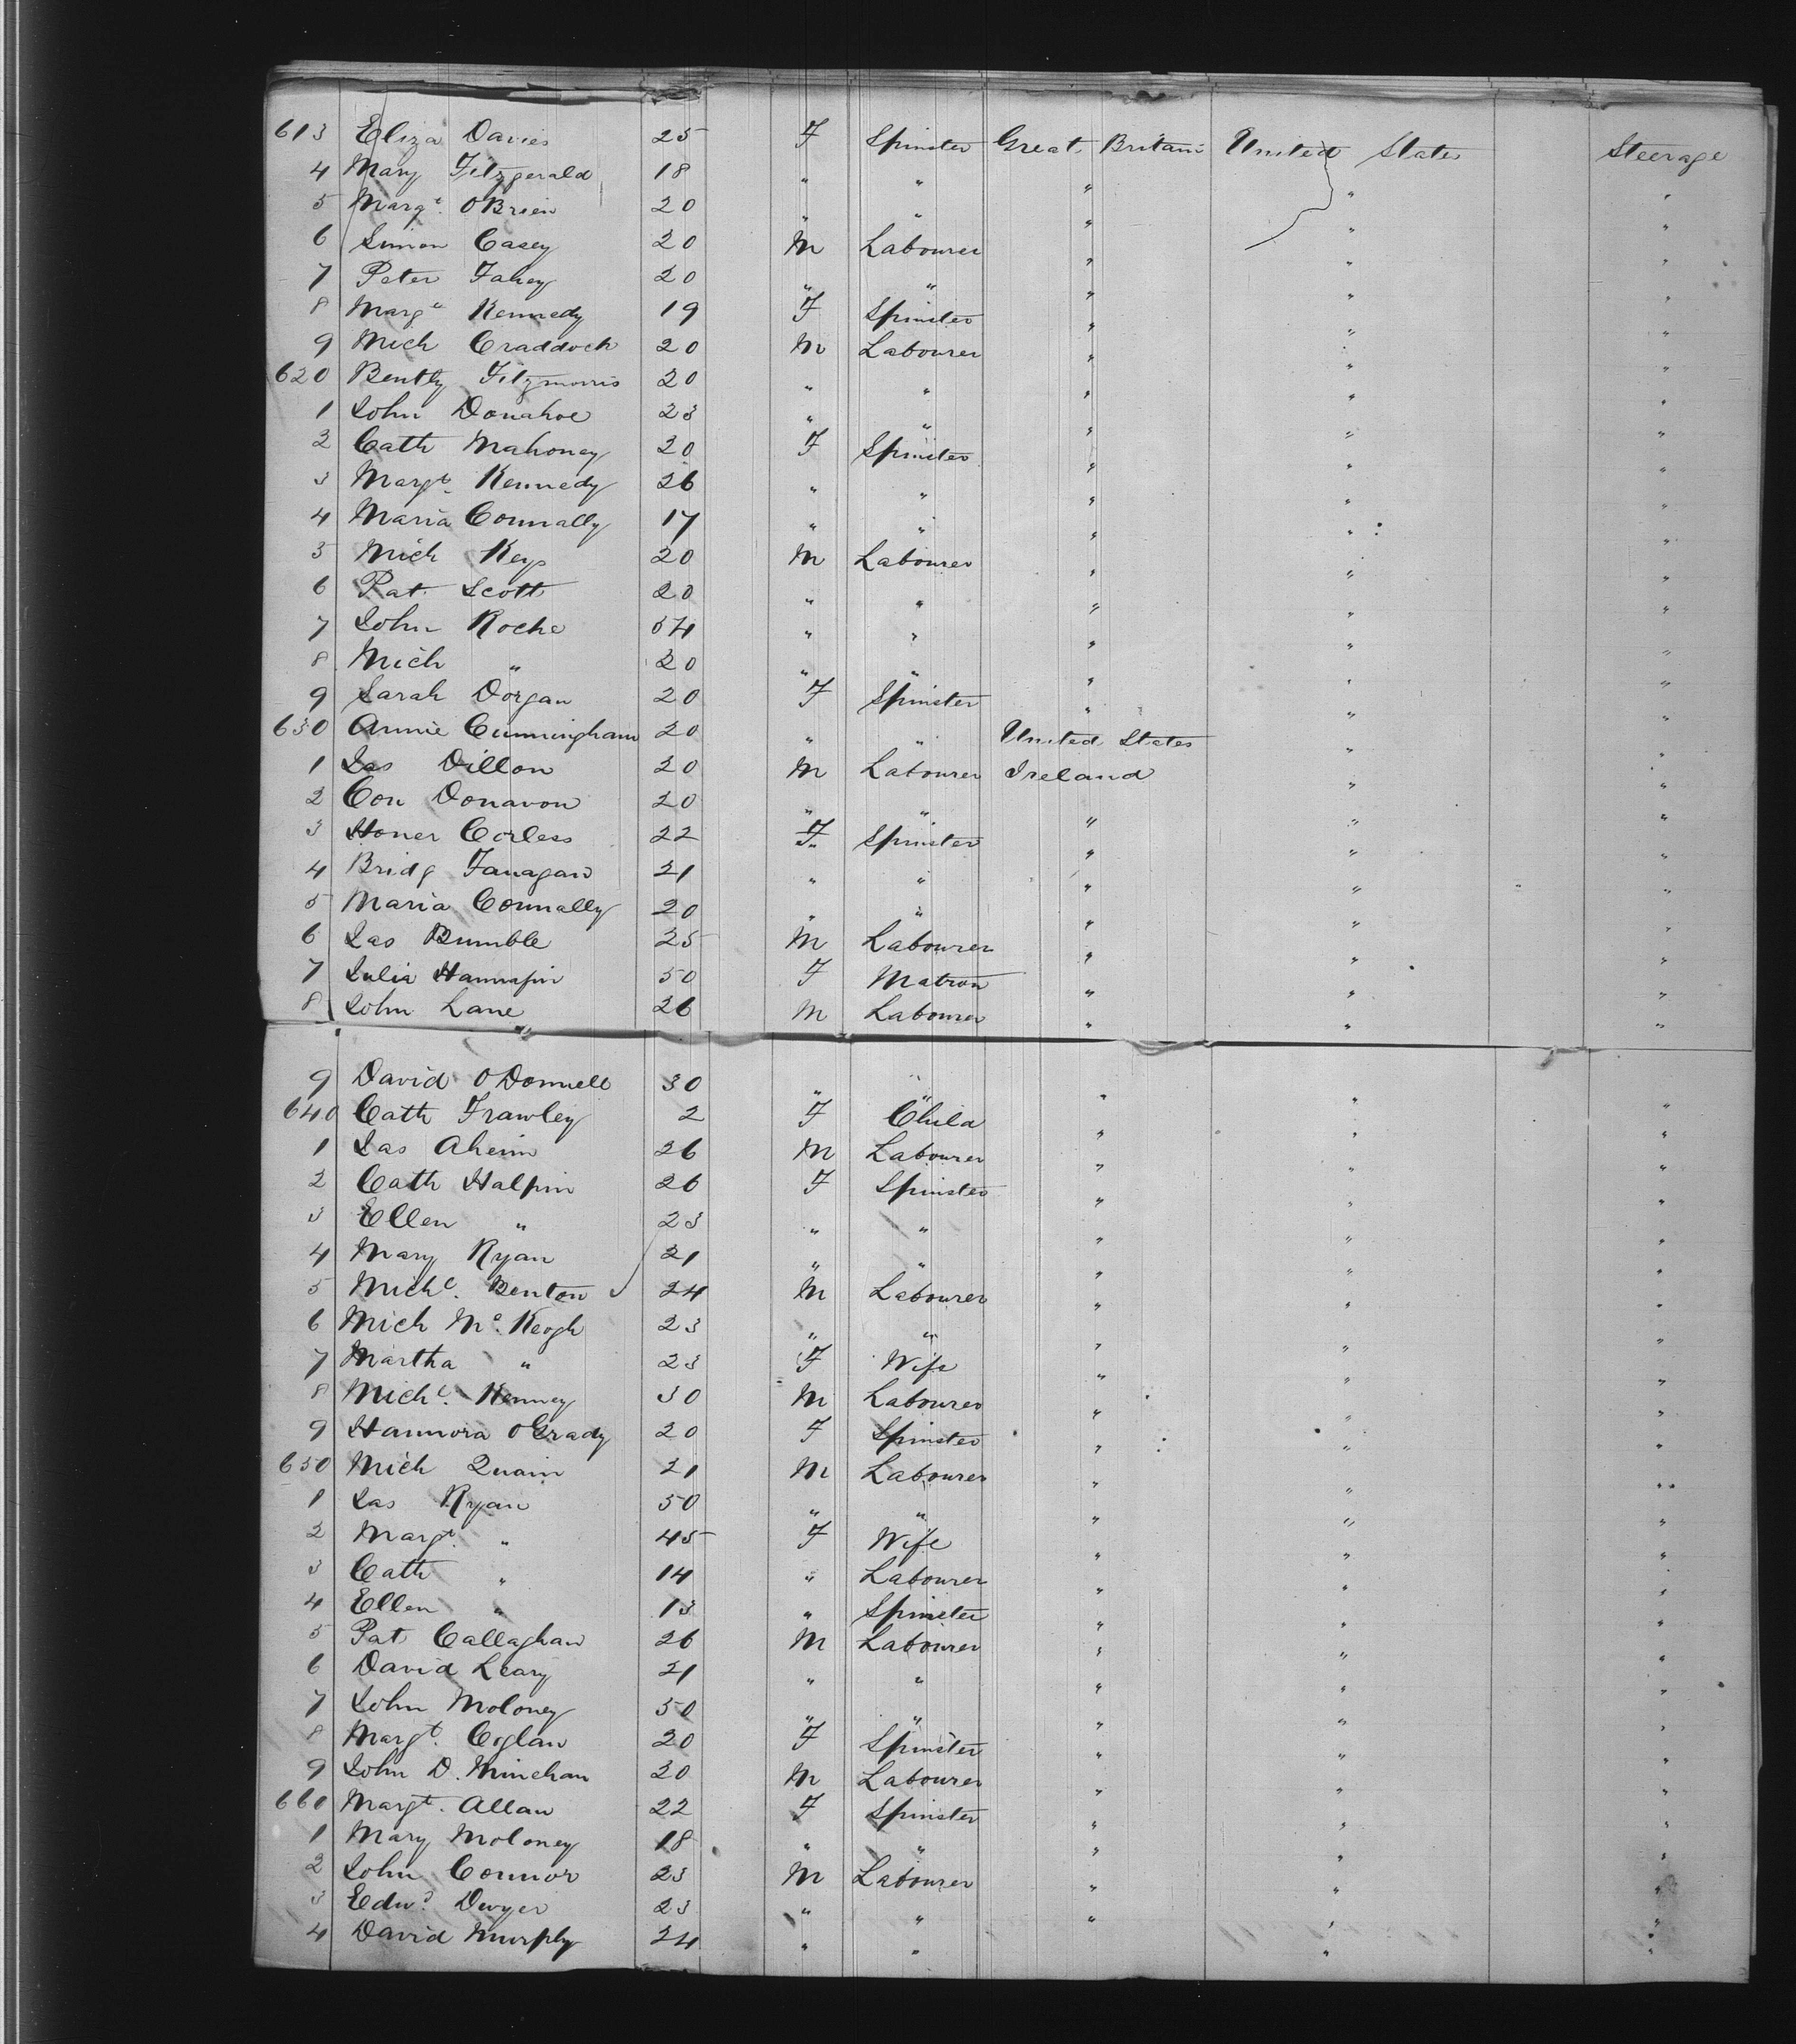 613 Eliza Davies 25 F Spinster Great Britain United States Steerage
4 Mary Fitzgerald 18 " " " " "
5 Margt. OBrien 20 " " " " "
6 Simon Casey 20 M Labourer " " "
7 Peter Fahey 20 " " " " "
8 Margt Kennedy 19 F Spinster " " "
9 Mich Craddock 20 M Labourer " " "
620 Bently Fitzmorris 20 " " " " "
1 John Donahoe 23 " " " " "
2 Cath Mahoney 20 F Spinster " " "
3 Margt. Kennedy 26 " " " " "
4 Maria Connally 17 " " " " "
5 Mich Keys 20 M Labourer " " "
6 Pat Scott 20 " " " " "
7 John Roche 54 " " " " "
8 Mich " 20 " " " " "
9 Sarah Dorgan 20 F Spinster " " "
630 Annie Cunningham 20 " " United States " "
1 Jas Dillon 20 M Labourer Ireland " "
2 Con Donavon 20 " " " " "
3 Honer Corless 22 F Spinster " " "
4 Bridg Fanagan 21 " " " " "
5 Maria Connally 20 " " " " "
6 Jas Bumble 25 M Labourer " " "
7 Julia Hannafin 50 F Matron " " "
8 John Lane 26 M Labourer " " "
9 David ODonnell 30 " " " " "
640 Cath Frawley 2 F Child " " "
1 Jas Ahenn 26 M Labourer " " "
2 Cath Halpin 26 F Spinster " " "
3 Ellen " 23 " " " " "
4 Mary Ryan 21 " " " " "
5 Michl. Benton 24 M Labourer " " "
6 Mich Mc. Keogh 23 " " " " "
7 Martha " 23 F Wife " " "
8 Michl. Kenney 30 M Labourer " " "
9 Hannora OGrady 20 F Spinster " " "
650 Mich Quain 21 M Labourer " " "
1 Jas Ryan 50 " " " " "
2 Margt. " 45 F Wife " " "
3 Cath " 14 " Labourer " " "
4 Ellen " 13 " Spinster " " "
5 Pat Callaghan 26 M Labourer " " "
6 David Leary 21 " " " " "
7 John Moloney 50 " " " " "
8 Margt. Coglan 20 F Spinster " " "
9 John D. Minehan 30 M Labourer " " "
660 Margt. Allan 22 F Spinster " " "
1 Mary Moloney 18 " " " " "
2 John Connor 23 M Labourer " " "
3 Edwd. Dwyer 23 " " " " "
4 David Murphy 24 " " " "